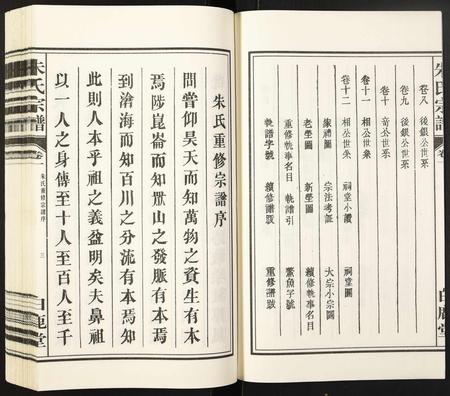 朱氏宗譜
卷一
卷八 後銀公世系
卷九 後銀公世系
卷十 奇公世系
卷十一 相公世系
卷十二 相公世系
家禮圖 祠堂小讚 祠堂圖
老塋圖 宗法考証 大宗小宗圖
重修執事名目 新塋圖 續修執事名目
執譜字號 執譜引 鱉魚字號
續修譜跋 重修譜跋
白鹿堂
朱氏重修宗譜序
問嘗仰昊天而知萬物之資生有本
焉陟崑崙而知眾山之發脈有本焉
到滄海而知百川之分流有本焉知
此則人本乎祖之義益明矣夫鼻祖
以一人之身傳至十人至百人至千
朱氏宗譜
卷一
朱氏重修宗譜序
三
白鹿堂